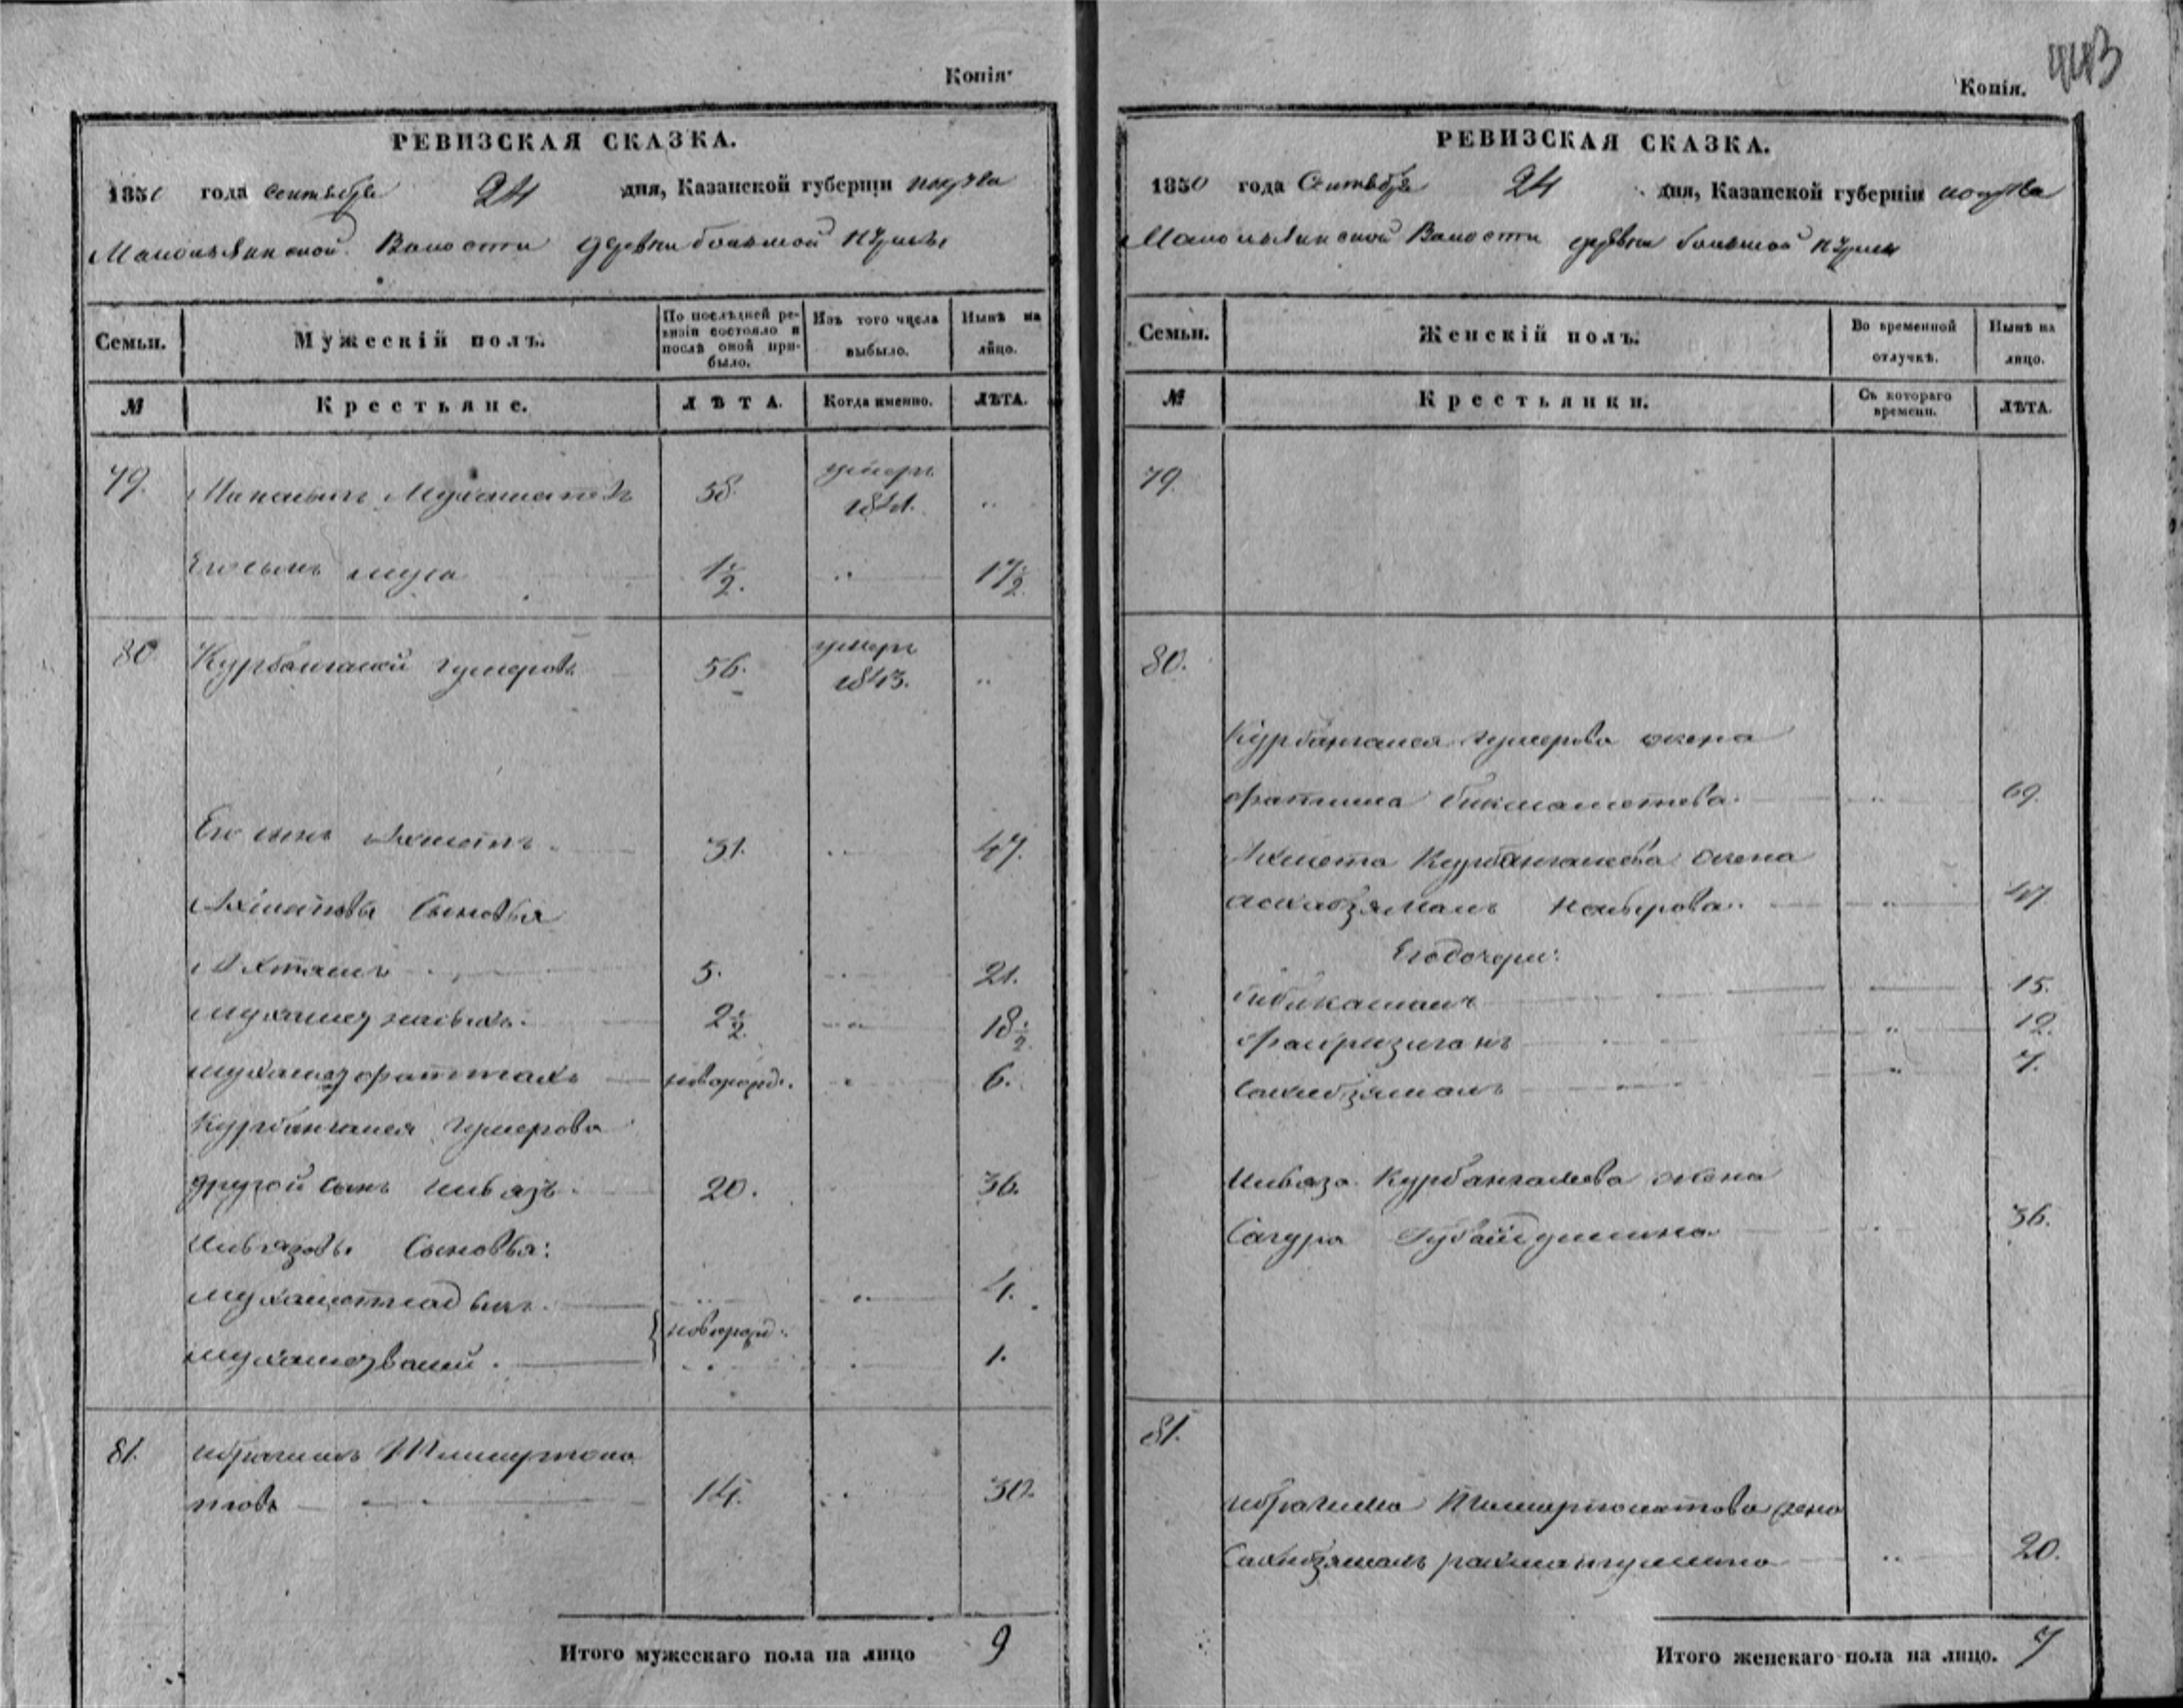 Копія
РЕВИЗСКАЯ СКАЗКА.
1850 года Сентября 24 дня, Казанской губерніи
Волости деревни большой
Семьи.
Мужескій полъ.
По послѣдней ревизіи состояло и послѣ оной прибыло.
Изъ того числа выбыло.
Нынѣ на лицо.
№
Крестьяне.
ЛѢТА.
Когда именно.
ЛѢТА.
79. 58 умеръ
1841. "
Его сынъ Муса 1½. " 17½
80. Курбангалей Гумеровъ 56. умеръ
1843. "
Его сынъ Ахметъ 31. " 47.
Ахметовы Сыновья
5. " 21.
2½ " 18½
Мухаметфаттахъ новорожд. " 6.
Курбангалея Гумерова
другой сынъ Нивазъ 20. 36.
Нивазовы Сыновья:
" " 4.
новорожд.
Мухаметвалей. " 1.
81. Ибрагимъ
товъ 14. " 30.
Итого мужескаго пола на лицо 9
443
Копія.
РЕВИЗСКАЯ СКАЗКА.
1850 года Сентября 24 дня, Казанской губерніи
Волости деревни большой
Семьи.
Женскій полъ.
Во временной отлучкѣ.
Нынѣ на лицо.
№
Крестьянки.
Съ котораго времени.
ЛѢТА.
79.
80.
Курбангалея Гумерова жена
Фатима Бикмаметева. " 69.
Ахмета Курбангалеева жена
" 47
Его дочери:
Бибикамалъ 15.
" 12.
Сахибзямалъ " 7.
Ниваза Курбангалеева жена
Сагура Губайдуллина " 36.
81.
Ибрагима жена
Сахибзямалъ Рахманкулина " 20.
Итого женскаго пола на лицо. 7